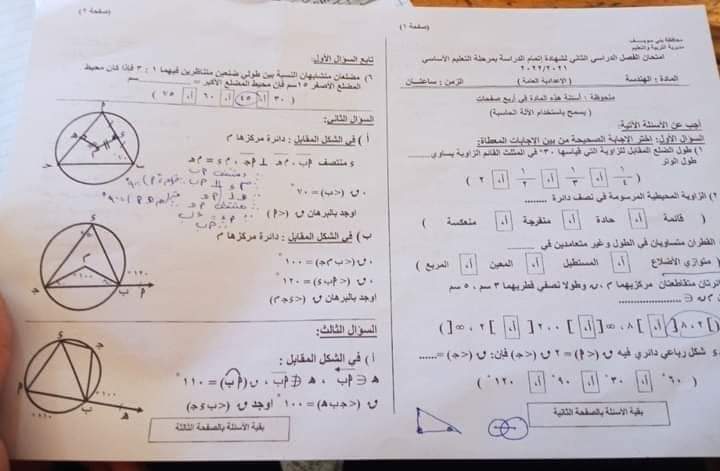 (صفحة ١)
محافظة بني سويف
مديرية التربية والتعليم
امتحان الفصل الدراسي الثاني لشهادة إتمام الدراسة بمرحلة التعليم الأساسي
٢٠٢٢/٢٠٢١
المادة : الهندسة (الإعدادية العامة) الزمن : ساعتان
ملحوظة : أسئلة هذه المادة في أربع صفحات
(يسمح باستخدام الآلة الحاسبة)
أجب عن الأسئلة الآتية:
السؤال الأول: اختر الإجابة الصحيحة من بين الإجابات المعطاة:
١) طول الضلع المقابل للزاوية التي قياسها ٣٠° في المثلث القائم الزاوية يساوي....
طول الوتر
( ١/٤ أ، ١/٣ أ، ١/٢ أ، ٢ )
٢) الزاوية المحيطية المرسومة في نصف دائرة ........
( قائمة أ، حادة أ، منفرجة أ، منعكسة )
القطران متساويان في الطول وغير متعامدين في ........
( متوازي الأضلاع أ، المستطيل أ، المعين أ، المربع )
دائرتان متقاطعتان مركزيهما م ، ن وطولا نصفي قطريهما ٣ سم ، ٥ سم
[ ٨،٢ ] أ، ] ∞ ، ٨ [ أ، ] ٢،٠ [ أ، ] ∞ ، ٢ [
شكل رباعي دائري فيه ق (<أ) = ٢ ق (<ج) فإن: ق (<ج) =......
( ٦٠° أ، ٣٠° أ، ٩٠° أ، ١٢٠° )
بقية الأسئلة بالصفحة الثانية
(صفحة ٢)
تابع السؤال الأول:
٦) مضلعان متشابهان النسبة بين طولي ضلعين متناظرين فيهما ١ : ٣ فإذا كان محيط
المضلع الأصغر ١٥ سم فإن محيط المضلع الأكبر = ........ سم
( ٣٠ أ، ٤٥ أ، ٦٠ أ، ٧٥ )
السؤال الثاني:
أ ) في الشكل المقابل : دائرة مركزها م
، ق (<ب) = ٧٠°
أوجد بالبرهان ق (<أ)
ب ) في الشكل المقابل : دائرة مركزها م
، ق (<ب م ج) = ١٠٠°
، ق (<أ ب د) = ١٢٠°
أوجد بالبرهان ق (<د ج م)
السؤال الثالث:
أ ) في الشكل المقابل :
ق (أب) = ١١٠°
ق (<ج ب هـ) = ١٠٠° أوجد ق (<ب د ج)
بقية الأسئلة بالصفحة الثالثة